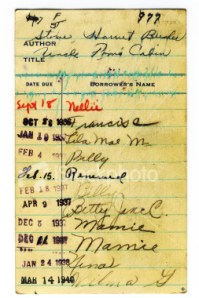 F 777
Stowe Harriet Beecher
AUTHOR
Uncle Tom's Cabin
TITLE
DATE DUE BORROWER'S NAME
Sept 18 Nellie
OCT 28 1936 Francis
JAN 20 Lila Mae Mc
FEB 4 Polly
Feb. 15. Renewed
FEB 18 1937
APR 9 1937 Betty Jane C.
DEC 3 1937 Mamie
1937 Mamie
JAN 24 1938
MAR 14 1940 Wilma G